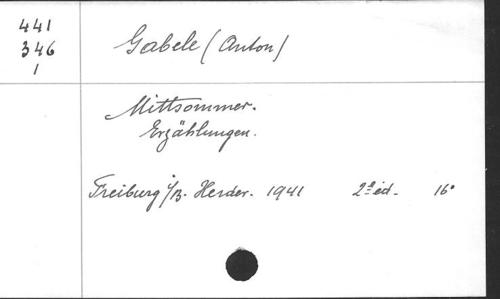 441
346
1
Gabele (Anton)
Mittsommer.
Erzählungen.
Freiburg i/B. Herder. 1941 2e éd. 16°